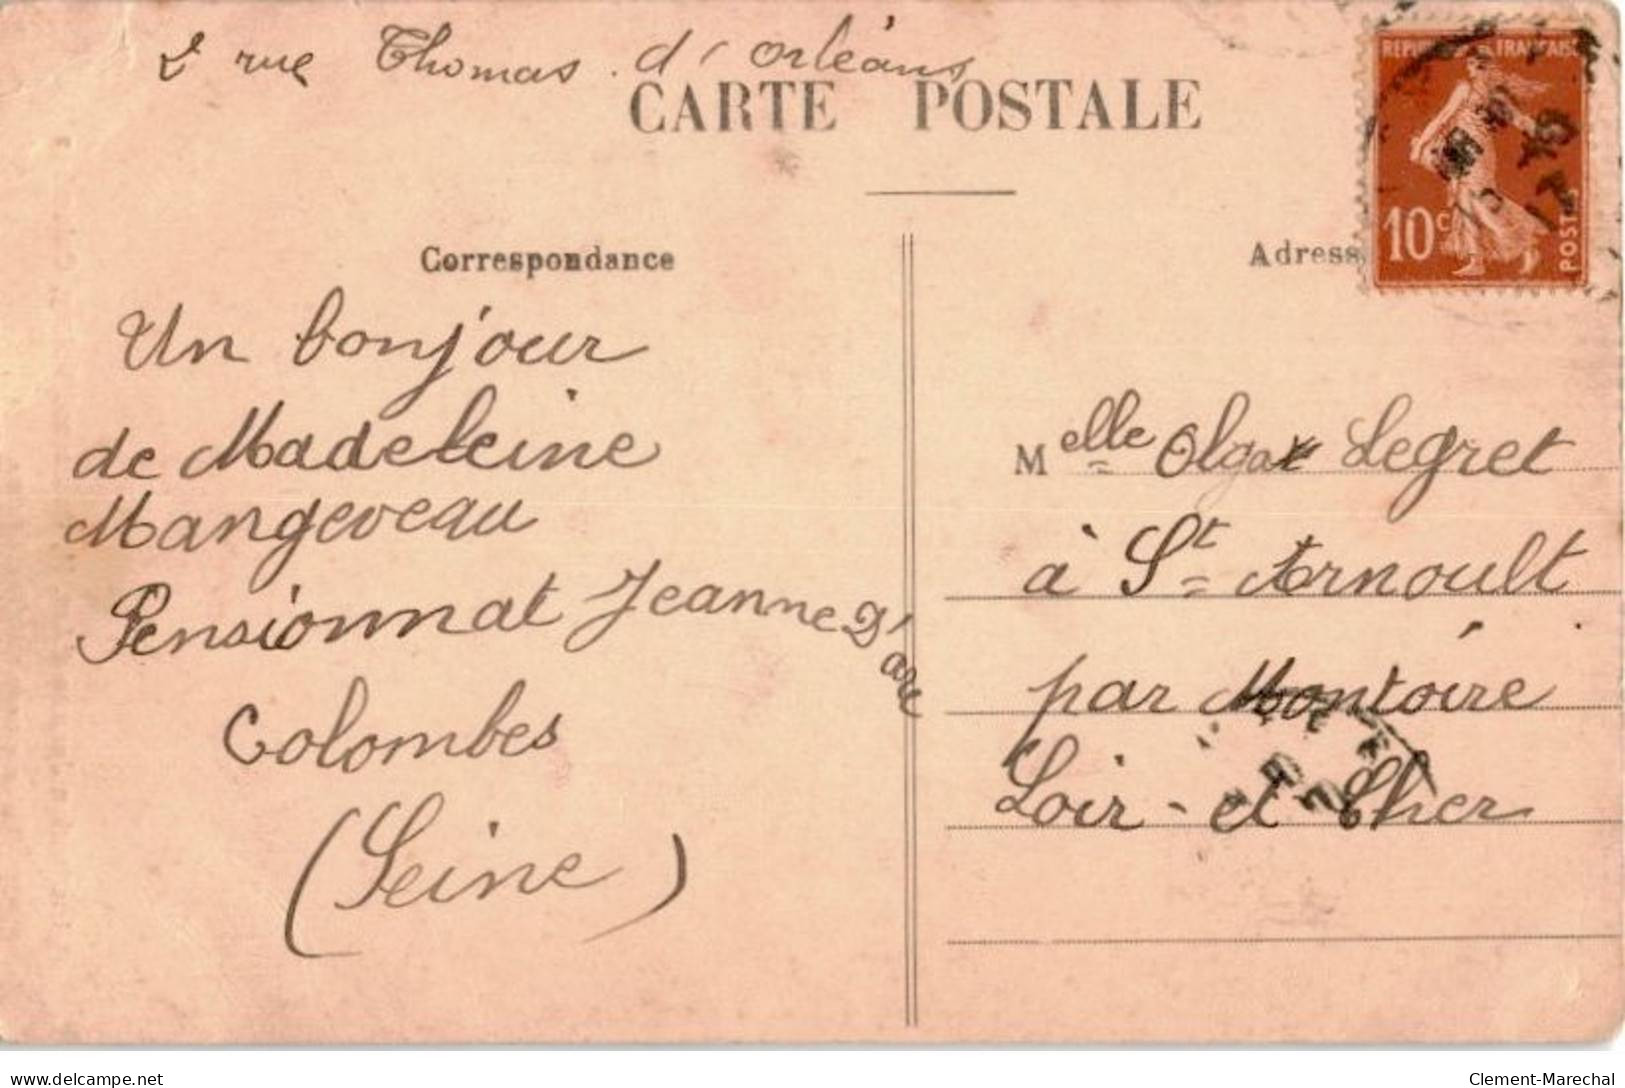 2 rue Thomas d'Orléans
CARTE POSTALE
Correspondance
Adress
REPUBLIQUE FRANÇAISE
10c
POSTES
Un bonjour
de Madeleine
Mangeveau
Pensionnat Jeanne D'arc
Colombes
(Seine)
Melle Olga Legret
à St Arnoult
par Montoire
Loir-et Cher
www.delcampe.net
Clement-Marechal